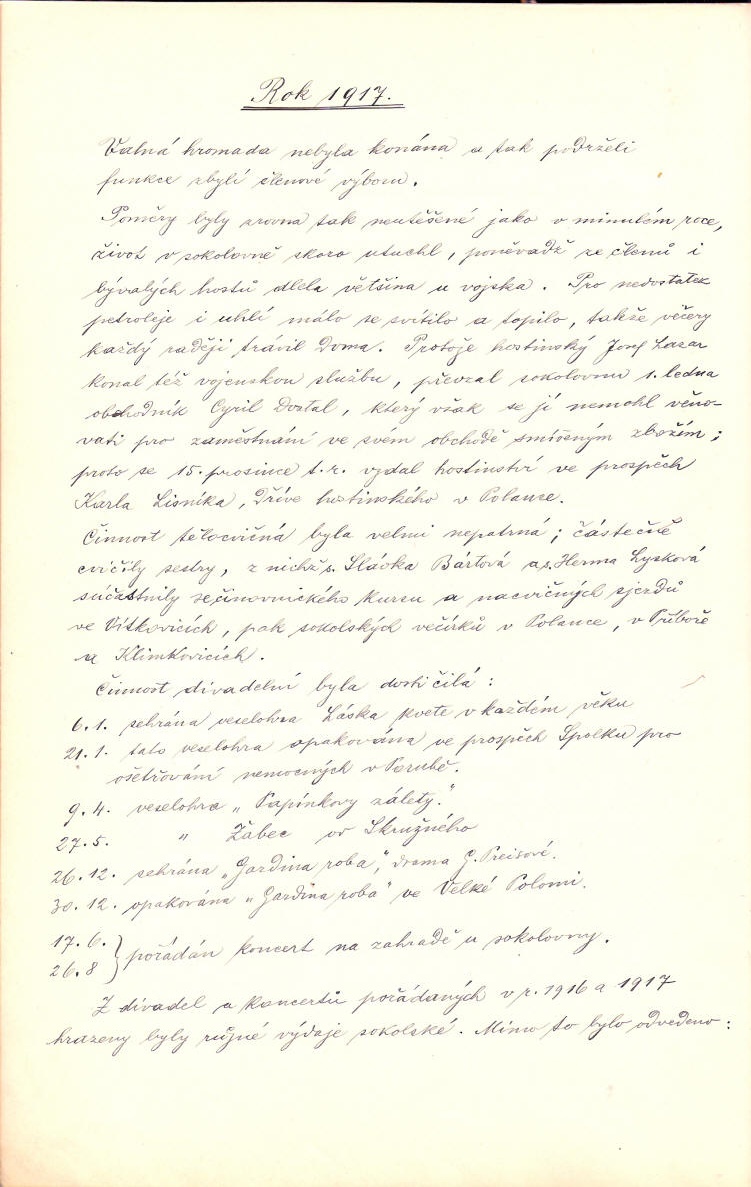 Rok 1917.
Valná hromada nebyla konána a tak podrželi
funkce zbylí členové výboru.
Poměry byly zrovna tak neutěšené jako v minulém roce,
život v sokolovně skoro utuchl, poněvadž ze členů i
bývalých hostů dlela většina u vojska. Pro nedostatek
petroleje i uhlí málo se svítilo a topilo, takže večery
každý raději trávil doma. Protože hostinský Josef Lazar
konal též vojenskou službu, převzal sokolovnu 1. ledna
obchodník Cyril Dostal, který však se jí nemohl věno-
vati pro zaměstnání ve svém obchodě smíšeným zbožím;
proto se 15. prosince t. r. vzdal hostinství ve prospěch
Karla Lisníka, dříve hostinského v Polance.
Činnost tělocvičná byla velmi nepatrná; částečně
cvičily sestry, z nichž s. Slávka Bártová a s. Herma Lysková
súčastnily se činovnického kursu a nacvičných sjezdů
ve Vítkovicích, pak sokolských večírků v Polance, v Příboře
a Klimkovicích.
Činnost divadelní byla dosti čilá:
6. 1. sehrána veselohra Láska kvete v každém věku
21. 1. tato veselohra opakována ve prospěch Spolku pro
ošetřování nemocných v Porubě.
9. 4. veselohra „Papínkovy zálety."
27. 5. " Žabec od Skružného
26. 12. sehrána „Gardina roba", drama G. Preisové.
30. 12. opakována „Gardina roba" ve Velké Polomi.
17. 6.
26. 8 } pořádán koncert na zahradě u sokolovny.
Z divadel a koncertů pořádaných v r. 1916 a 1917
hrazeny byly různé výdaje sokolské. Mimo to bylo odvedeno: